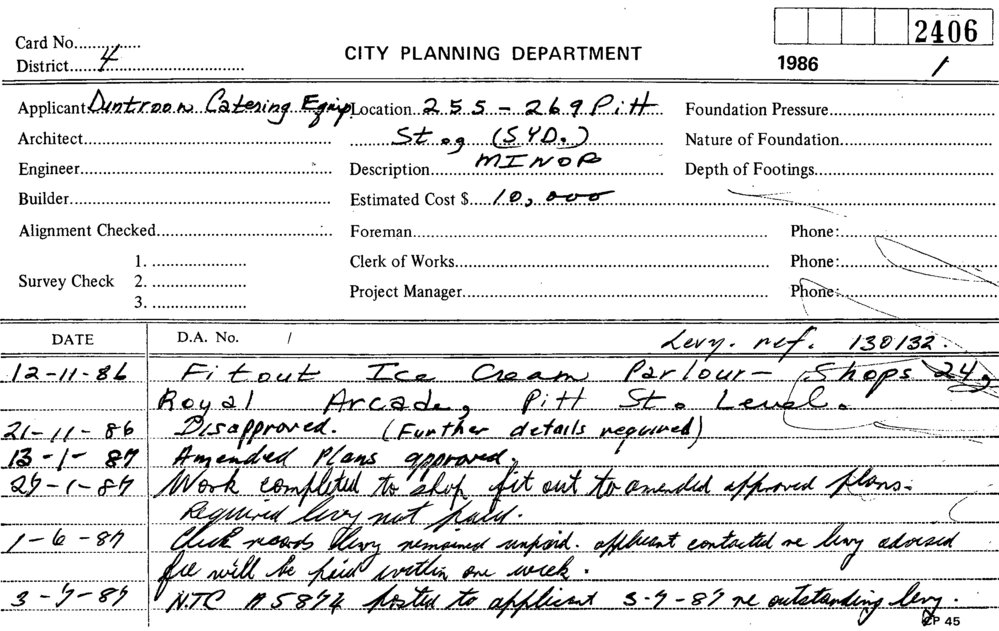 2406
Card No.
CITY PLANNING DEPARTMENT
District 4
1986 /
Applicant Duntroon Catering Equip Location 255-269 Pitt Foundation Pressure
Architect St. (SYD.) Nature of Foundation
Engineer Description MINOR Depth of Footings
Builder Estimated Cost $ 10,000
Alignment Checked Foreman Phone:
1. Clerk of Works Phone:
Survey Check 2.
Project Manager Phone:
3.
DATE D.A. No. / Levy. ref. 130132.
12-11-86 Fitout Ice Cream Parlour- Shops 24,
Royal Arcade, Pitt St. Level.
21-11-86 Disapproved. (Further details required)
13-1-87 Amended Plans approved.
27-1-87 Work completed to shop fit out to amended approved plans.
Required levy not paid.
1-6-87 Check records levy remained unpaid. applicant contacted re levy advised
fee will be paid within one week.
3-7-87 N.T.C posted to applicant 3-7-87 re outstanding levy.
CP 45